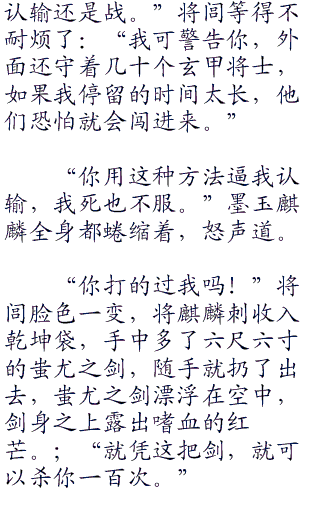 认输还是战。”将闾等得不
耐烦了：“我可警告你，外
面还守着几十个玄甲将士，
如果我停留的时间太长，他
们恐怕就会闯进来。”
“你用这种方法逼我认
输，我死也不服。”墨玉麒
麟全身都蜷缩着，怒声道。
“你打的过我吗！”将
闾脸色一变，将麒麟刺收入
乾坤袋，手中多了六尺六寸
的蚩尤之剑，随手就扔了出
去，蚩尤之剑漂浮在空中，
剑身之上露出嗜血的红
芒。；“就凭这把剑，就可
以杀你一百次。”